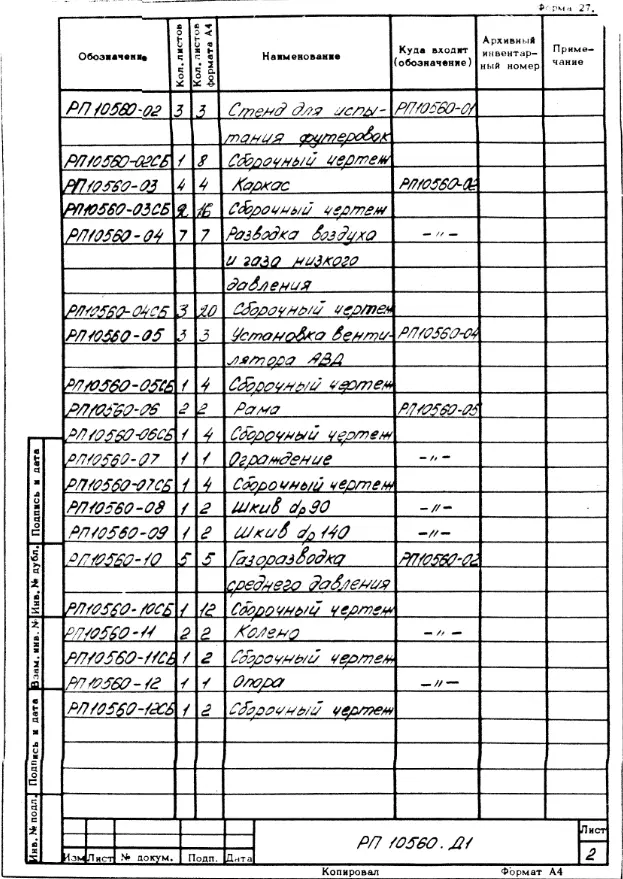 Форма 27.
Обозначение Кол. листов Кол. листов формата А4 Наименование Куда входит (обозначение) Архивный инвентарный номер Примечание
РП10560-02 3 3 Стенд для испы- РП10560-01
тания футеровок
РП10560-02СБ 1 8 Сборочный чертеж
РП10560-03 4 4 Каркас РП10560-02
РП10560-03СБ 2 16 Сборочный чертеж
РП10560-04 7 7 Разводка воздуха -"-
и газа низкого
давления
РП10560-04СБ 3 20 Сборочный чертеж
РП10560-05 3 3 Установка венти- РП10560-04
лятора АВД
РП10560-05СБ 1 4 Сборочный чертеж
РП10560-06 2 2 Рама РП10560-05
РП10560-06СБ 1 4 Сборочный чертеж
РП10560-07 1 1 Ограждение -"-
РП10560-07СБ 1 4 Сборочный чертеж
РП10560-08 1 2 Шкив dр90 -"-
РП10560-09 1 2 Шкив dр140 -"-
РП10560-10 5 5 Газоразводка РП10560-02
среднего давления
РП10560-10СБ 1 12 Сборочный чертеж
РП10560-11 2 2 Колено -"-
РП10560-11СБ 1 2 Сборочный чертеж
РП10560-12 1 1 Опора -"-
РП10560-12СБ 1 2 Сборочный чертеж
Подпись и дата
Инв. № дубл.
Взам. инв. №
Подпись и дата
Инв. № подл.
РП 10560. Д1
Лист
2
Изм Лист № докум. Подп. Дата
Копировал Формат А4